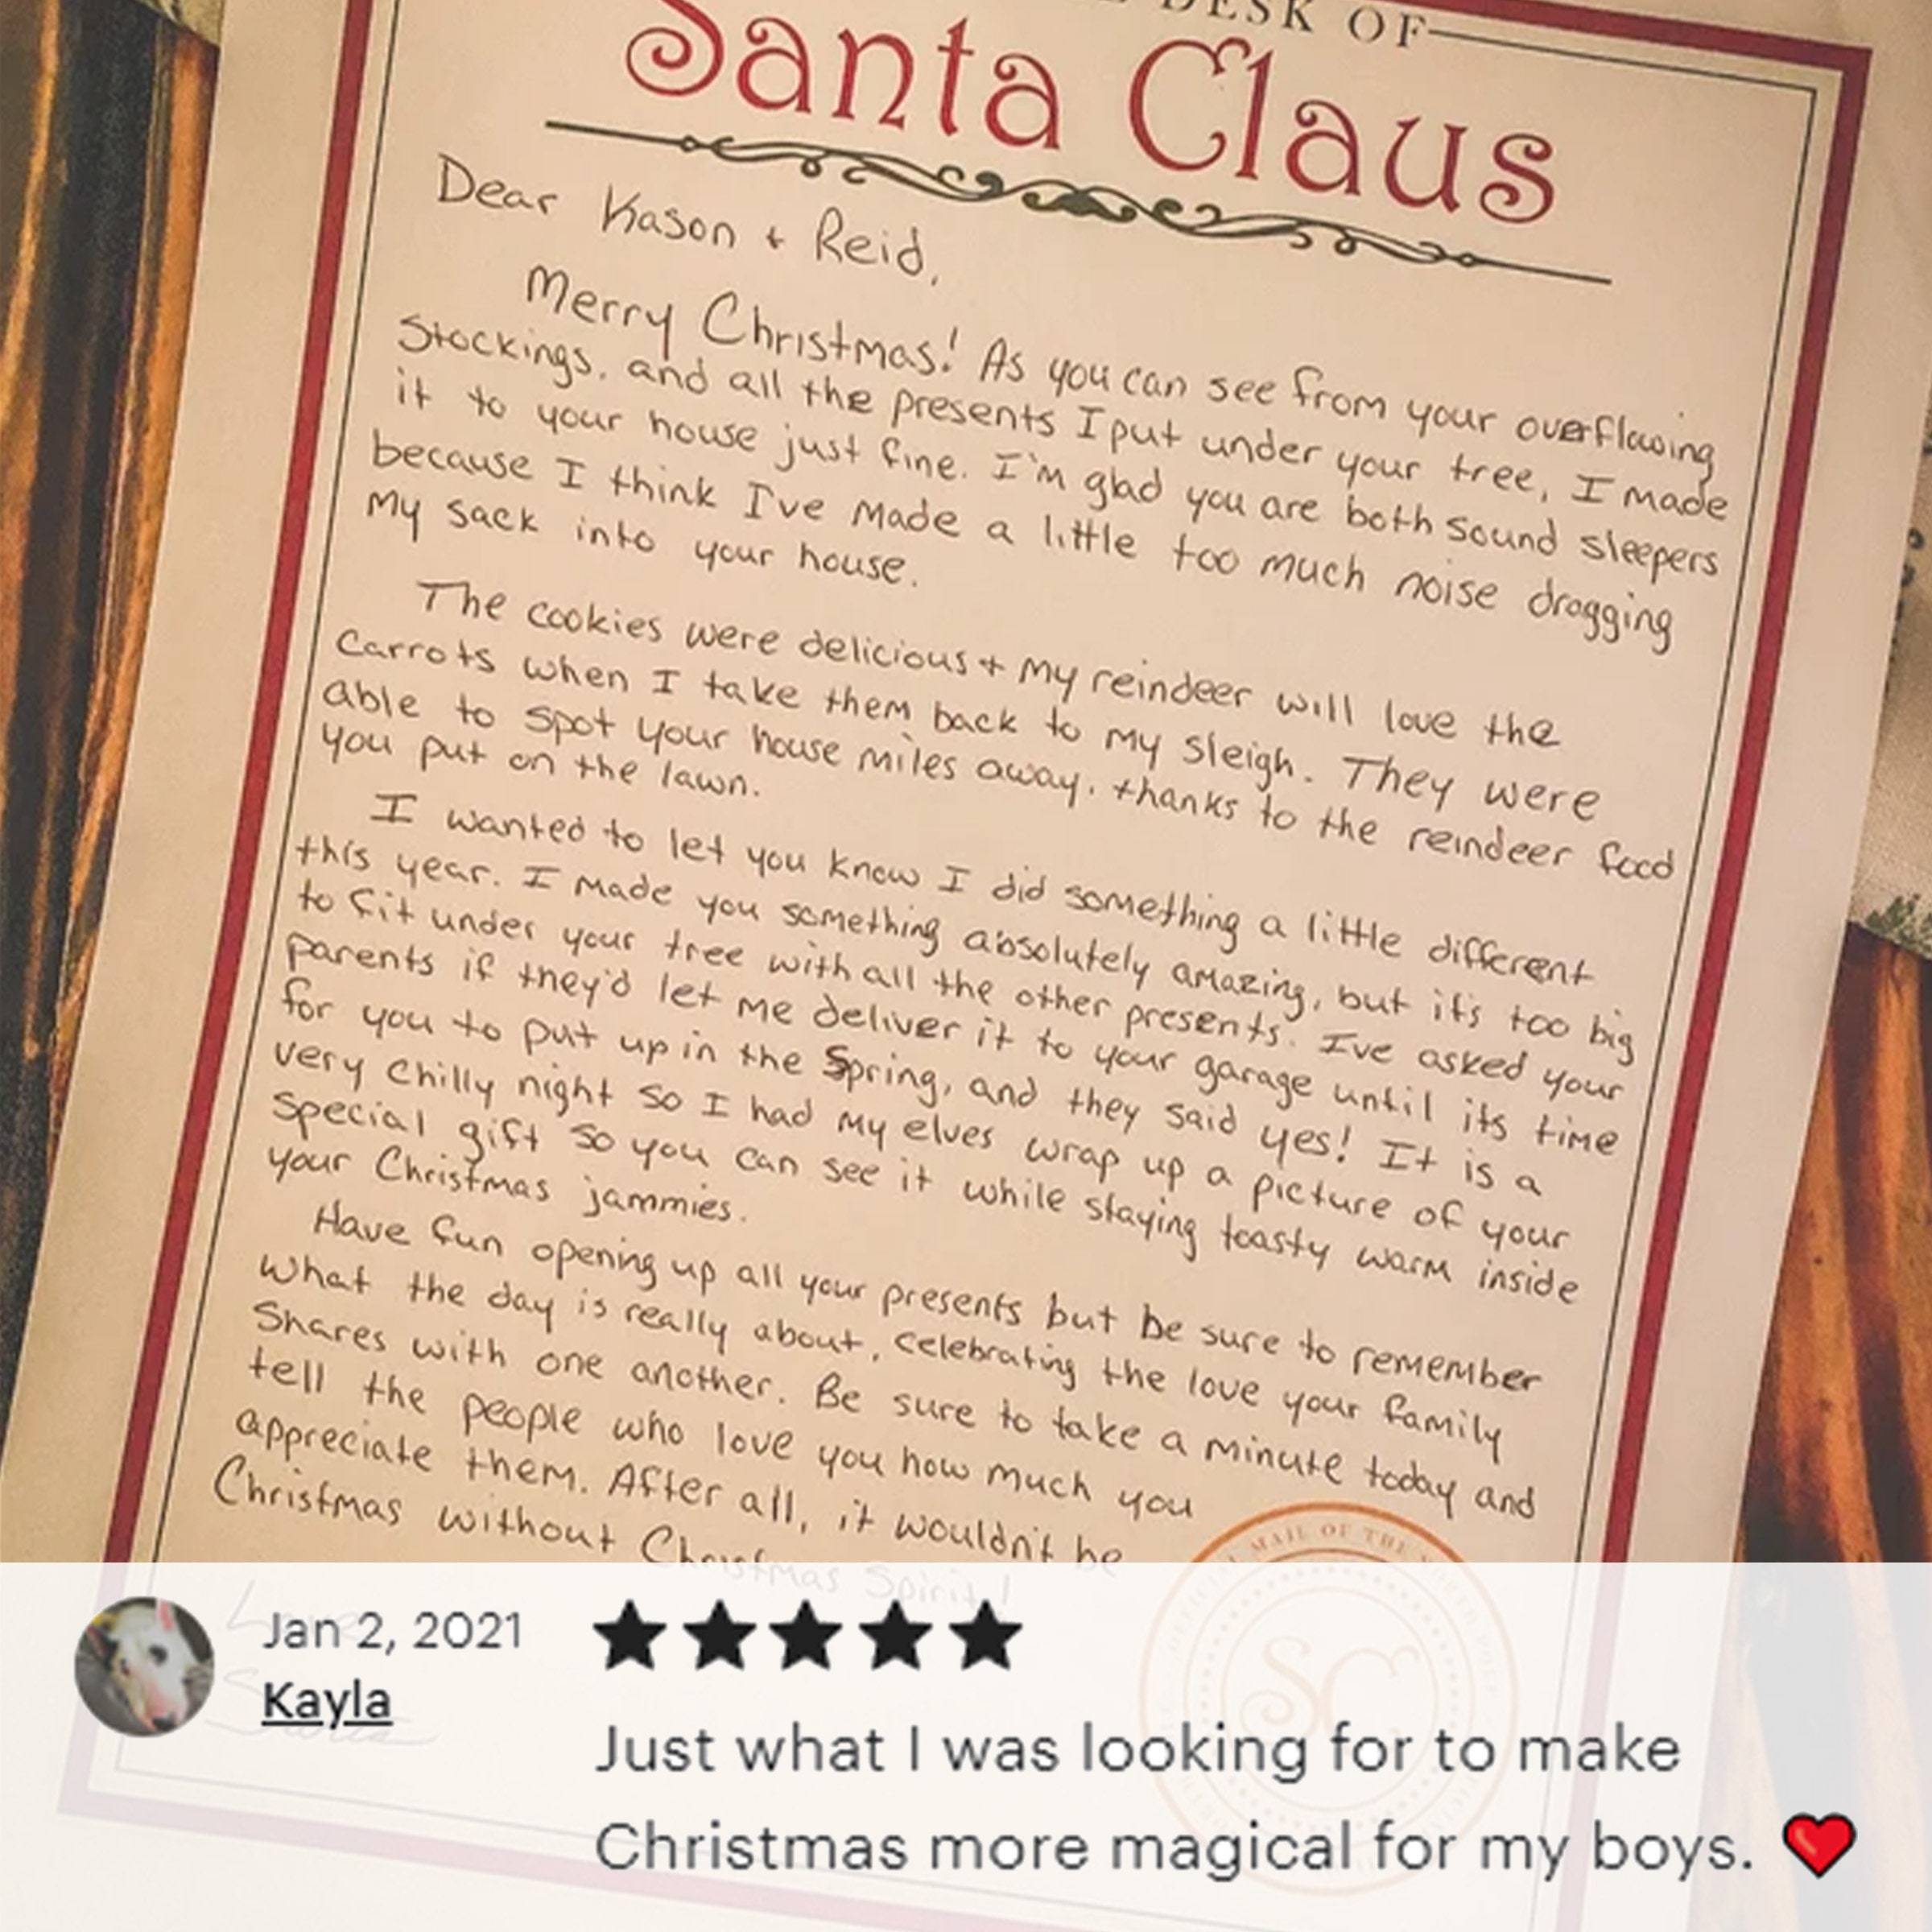 DESK OF
Santa Claus
Dear Kason + Reid,
Merry Christmas! As you can see from your overflowing
Stockings, and all the presents I put under your tree, I made
it to your house just fine. I'm glad you are both sound sleepers
because I think I've made a little too much noise dragging
my sack into your house.
The cookies were delicious + my reindeer will love the
Carrots when I take them back to my sleigh. They were
able to spot your house miles away, thanks to the reindeer food
you put on the lawn.
I wanted to let you know I did something a little different
this year. I made you something absolutely amazing, but it's too big
to fit under your tree with all the other presents. I've asked your
parents if they'd let me deliver it to your garage until its time
for you to put up in the Spring, and they said yes! It is a
very chilly night so I had my elves wrap up a picture of your
special gift so you can see it while staying toasty warm inside
your Christmas jammies.
Have fun opening up all your presents but be sure to remember
what the day is really about, celebrating the love your family
Shares with one another. Be sure to take a minute today and
tell the people who love you how much you
appreciate them. After all, it wouldn't be
Christmas without Christmas Spirit!
MAIL OF THE
SC
Jan 2, 2021
Kayla
Just what I was looking for to make
Christmas more magical for my boys. ❤️